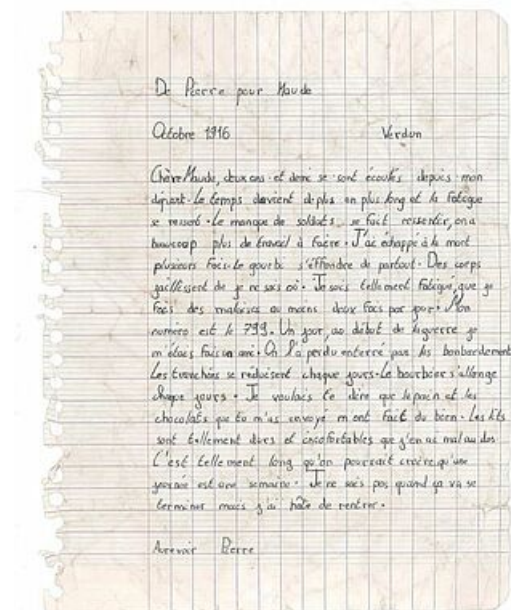 De Pierre pour Maude
Octobre 1916 Verdun
Chère Maude, deux ans et demi se sont écoulés depuis mon
départ. Le temps devient de plus en plus long et la fatigue
se ressent. Le manque de soldats se fait ressentir, on a
beaucoup plus de travail à faire. J'ai échappé à la mort
plusieurs fois. Le gourbi s'éffondre de partout. Des corps
jaillissent de je ne sais où. Je suis tellement fatigué, que je
fais des malaises au moins deux fois par jour. Mon
numéro est le 799. Un jour, au début de la guerre je
m'étais fais un ami. On l'a perdu enterré par les bombardement
Les tranchées se réduisent chaque jours. Le bourbier s'allonge
chaque jours. Je voulais te dire que le pain et les
chocolats que tu m'as envoyé m'ont fait du bien. Les lits
sont tellement durs et inconfortables que j'en ai mal au dos
C'est tellement long qu'on pourrait croire qu'une
journée est une semaine. Je ne sais pas quand ça va se
terminer mais j'ai hâte de rentrer.
Aurevoir Pierre